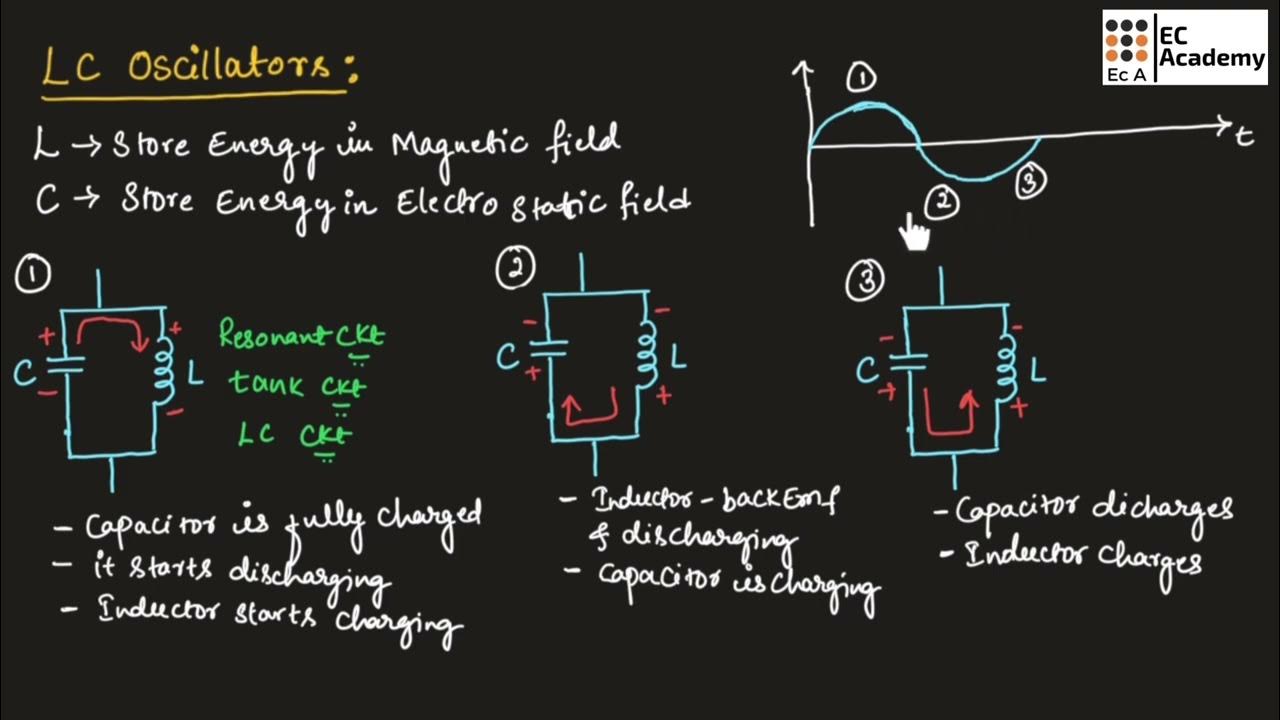 LC Oscillators:
EC
Academy
Ec A
L → Store Energy in Magnetic field
C → Store Energy in Electro static field
1
2
3
t
1
+
+
C
L
-
-
Resonant Ckt
tank Ckt
LC Ckt
- Capacitor is fully charged
- it starts discharging
- Inductor starts charging
2
-
-
C
L
+
+
- Inductor - back Emf
& discharging
- Capacitor is charging
3
-
-
C
L
+
+
- Capacitor dicharges
- Inductor charges